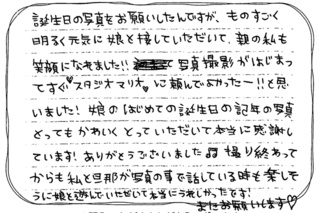 誕生日の写真をお願いしたんですが、ものすごく
明るく元気に娘と接していただいて、親の私も
笑顔になれました!! て写真撮影がはじまっ
てすぐ♡スタジオマリオ♡に頼んでよかったー!!と思
いました!娘のはじめての誕生日の記年の写真
とってもかわいくとっていただいて本当に感謝し
ています!ありがとうございました♫撮り終わって
からも私と旦那が写真の事を話している時も楽しそ
うに娘と遊んでいただいて本当にうれしかったです!
またお願いします♡